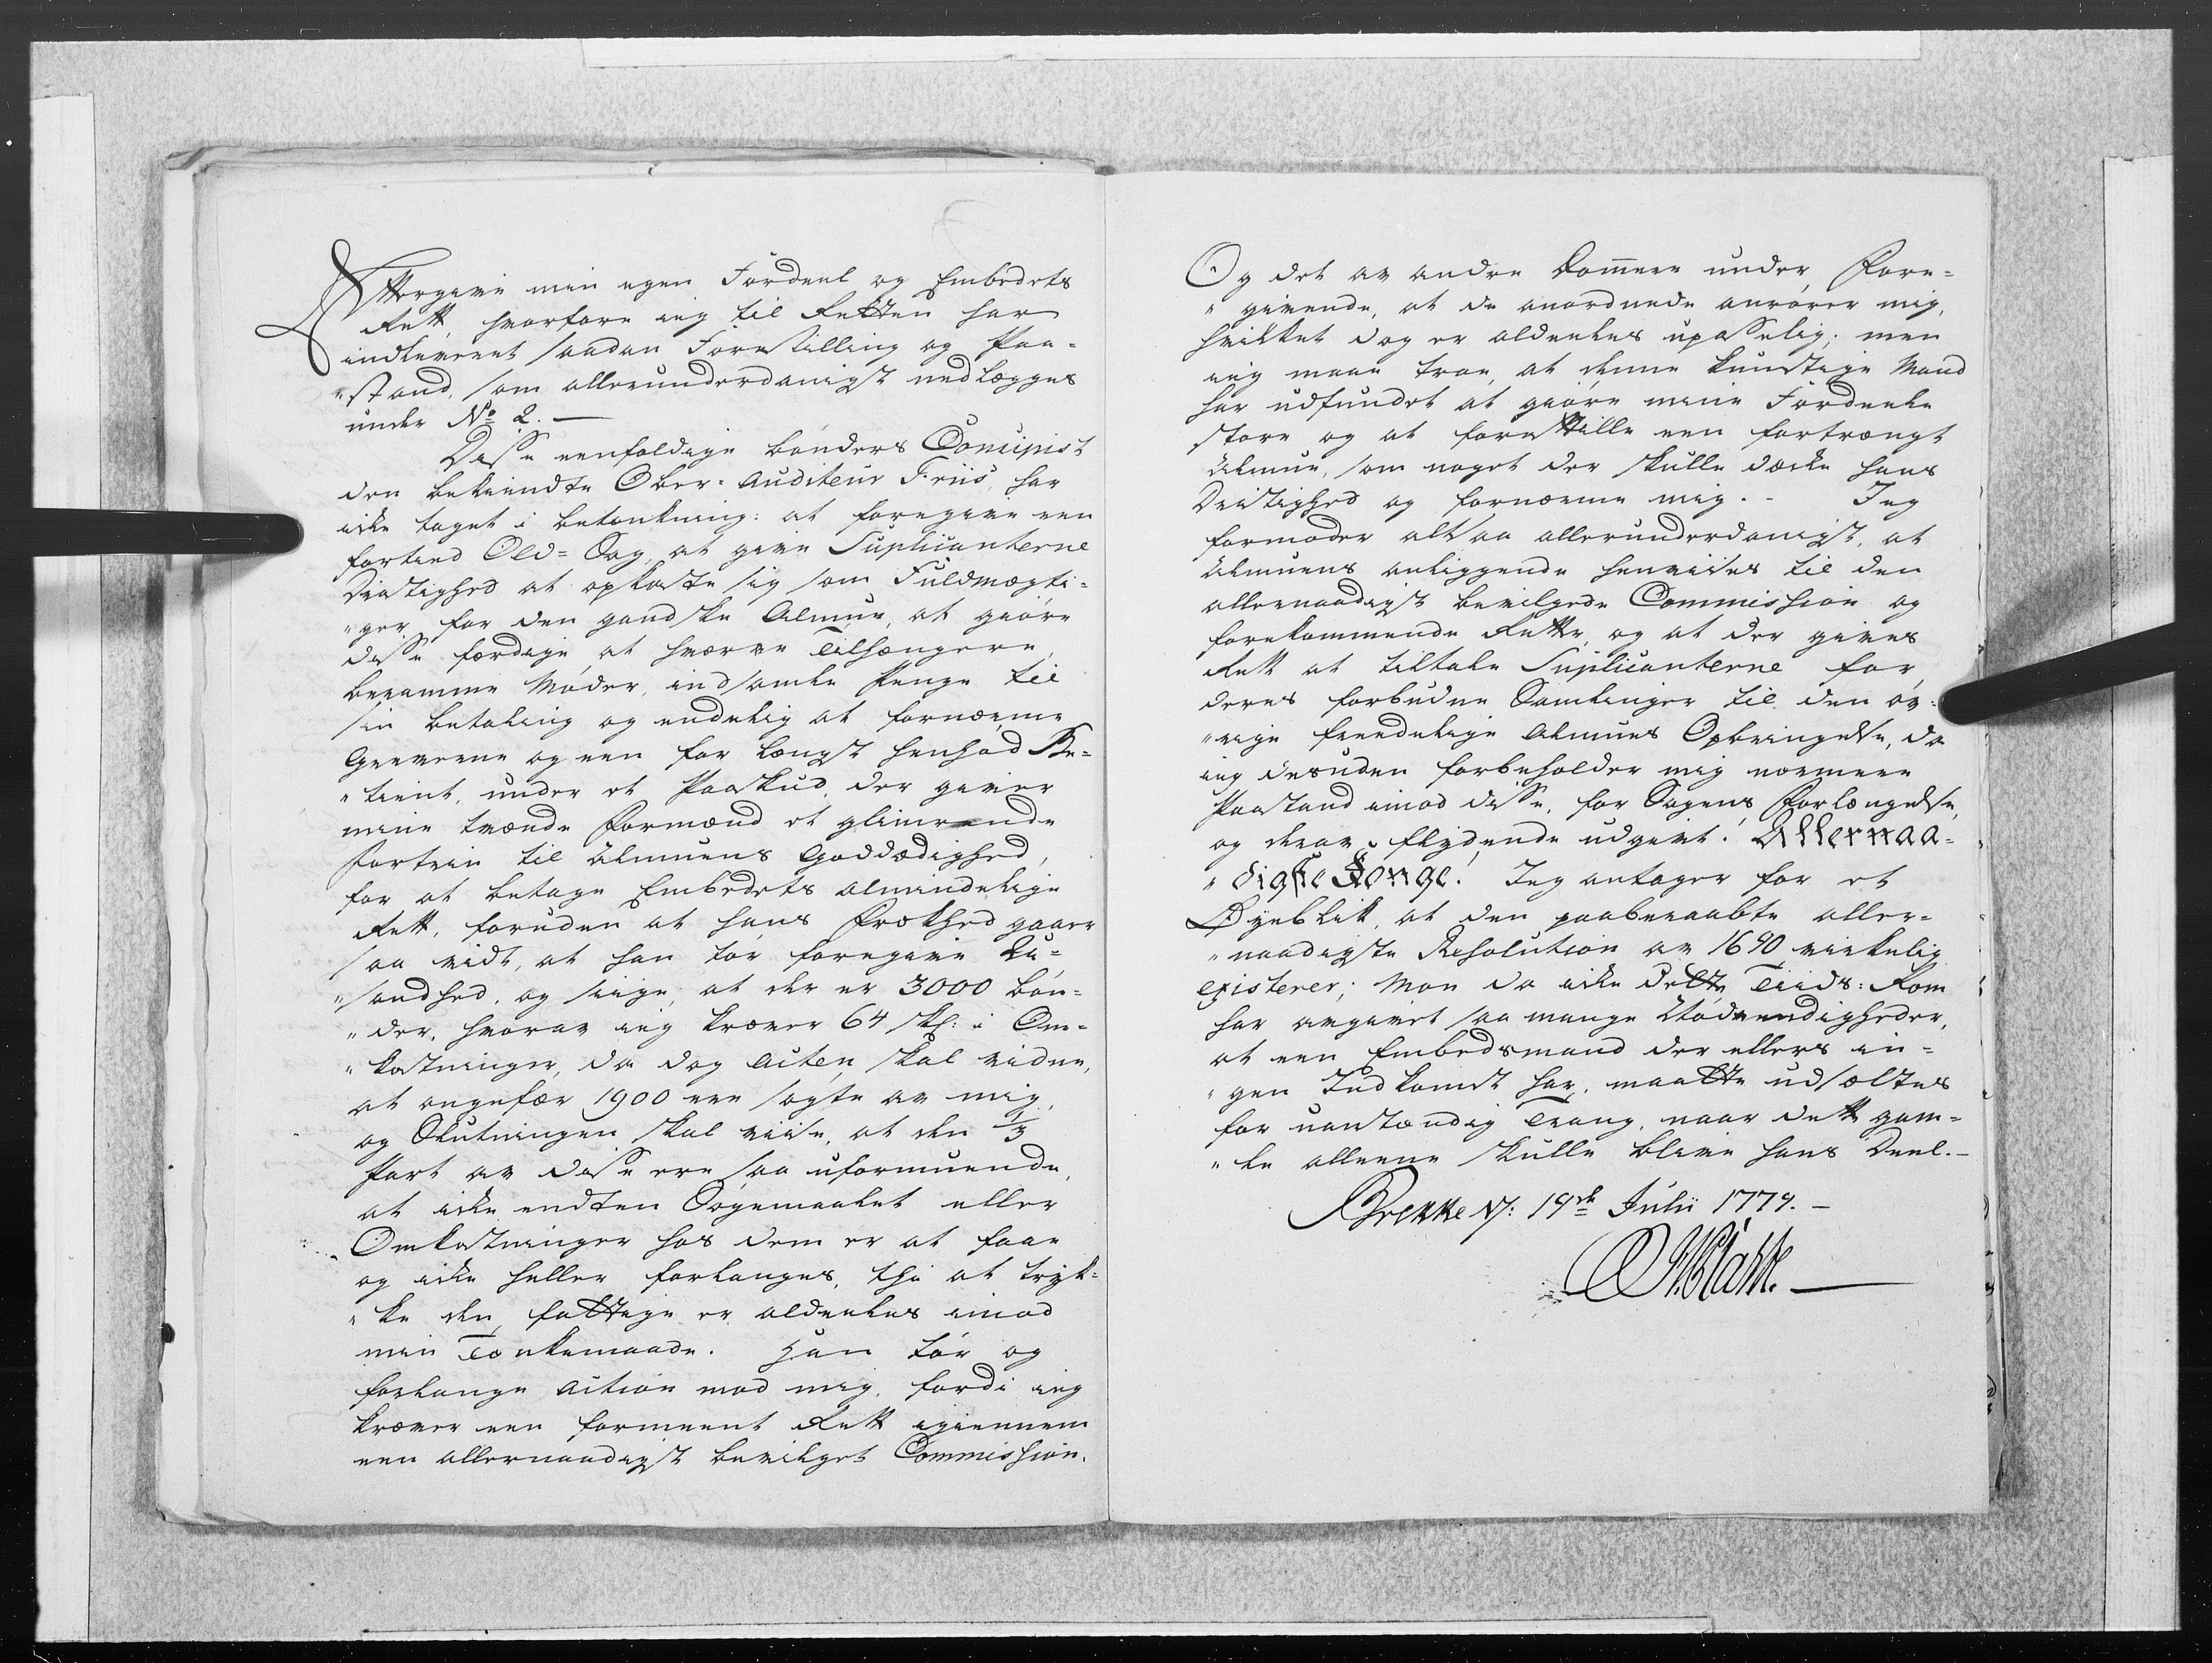 Eftergive min egen Fordeel og Embedets
Rett, hvorfore ieg til Retten har
indleveret saadan Forestilling og Paa-
"stand, som allerunderdanigst nedlægges
under No 2. —
Disse eenfoldige bönders Concipist
den bekiendte Ober-Auditeur Friis, har
icke taget i betænkning: at foregive een
fortied Old-Sag, at give Suplicanterne
Dristighed at opkaste sig som Fuldmægti-
"ger for den gandske Almue, at giöre
disse færdige at hverve Tilhængere,
beramme Möder, indsamle Penge til
sin betaling og endelig at fornærme
Greverne og een for længst henhöd Be-
"tient, under et Paaskud, der giver
mine trænde Formænd et glimrende
Fortrin til Almuens Goddædighed,
for at betage Embedets almindelige
Rett, foruden at hans Frækhed gaaer
saa vidt, at han tör foregive Uu-
"sandhed, og siige, at der er 3000 bön-
"der, hvorav ieg kræver 64 sk: i Om-
"kostninger, da dog Acten skal vidne,
at ongefær 1900 ere sögte av mig,
og Slutningen skal viise, at den 1/3
Part av disse ere saa uformuende,
at icke endten Sögemaalet eller
Omkostninger hos dem er at faae
og icke heller forlanges, thi at tryk-
"ke den fattige er aldeeles imod
min Tænkemaade. Han tör og
forlange Action mod mig, fordi ieg
kræver een formeent Rett igiennem
een allernaadigst bevilget Commission.
Og det av andre Dommere under, Fore-
"givende, at de anordnede anrörer mig,
hvilket dog er aldeeles upasselig; men
ieg maae troe, at denne kunstige Mand
har udfundet at giöre mine Fordeele
store og at forestille een fortrængt
Almue, som noget der skulle dække hans
Dristighed og fornærme mig. - Jeg
formoder altsaa allerunderdanigst, at
Almuens anliggende henviises til den
allernaadigst bevilgede Commission og
forekommende Retter, og at der gives
Rett at tiltale Suplicanterne for
deres forbudne Samlinger til den öv-
"rige freedelige Almues Opbringelse, da
ieg desuden forbeholder mig nærmere
Paastand imod disse, for Sagens Forlængelse,
og derav flydende udgivt. Allernaa-
"digste Konge! Jeg antager for et
Öyeblik, at den paaberaabte aller-
"naadigste Resolution av 1690 virkelig
existerer; Mon da icke dette Tiids-Rom
har avgivet saa mange Nödvendigheder,
at een Embedsmand der ellers in-
"gen Indkomst har, maatte udsættes
for uanstændig Trang, naar dette gam-
"le alleene skulle blive hans Deel. —
Brekke d: 19de Julii 1779. —